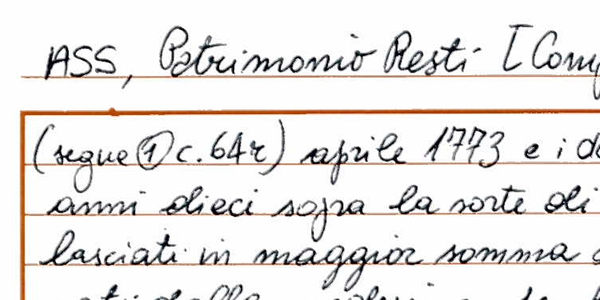 ASS, Patrimonio Resti [Com
(segue ① c. 64r) aprile 1773 e i d
anni dieci sopra la sorte di
lasciati in maggior somma